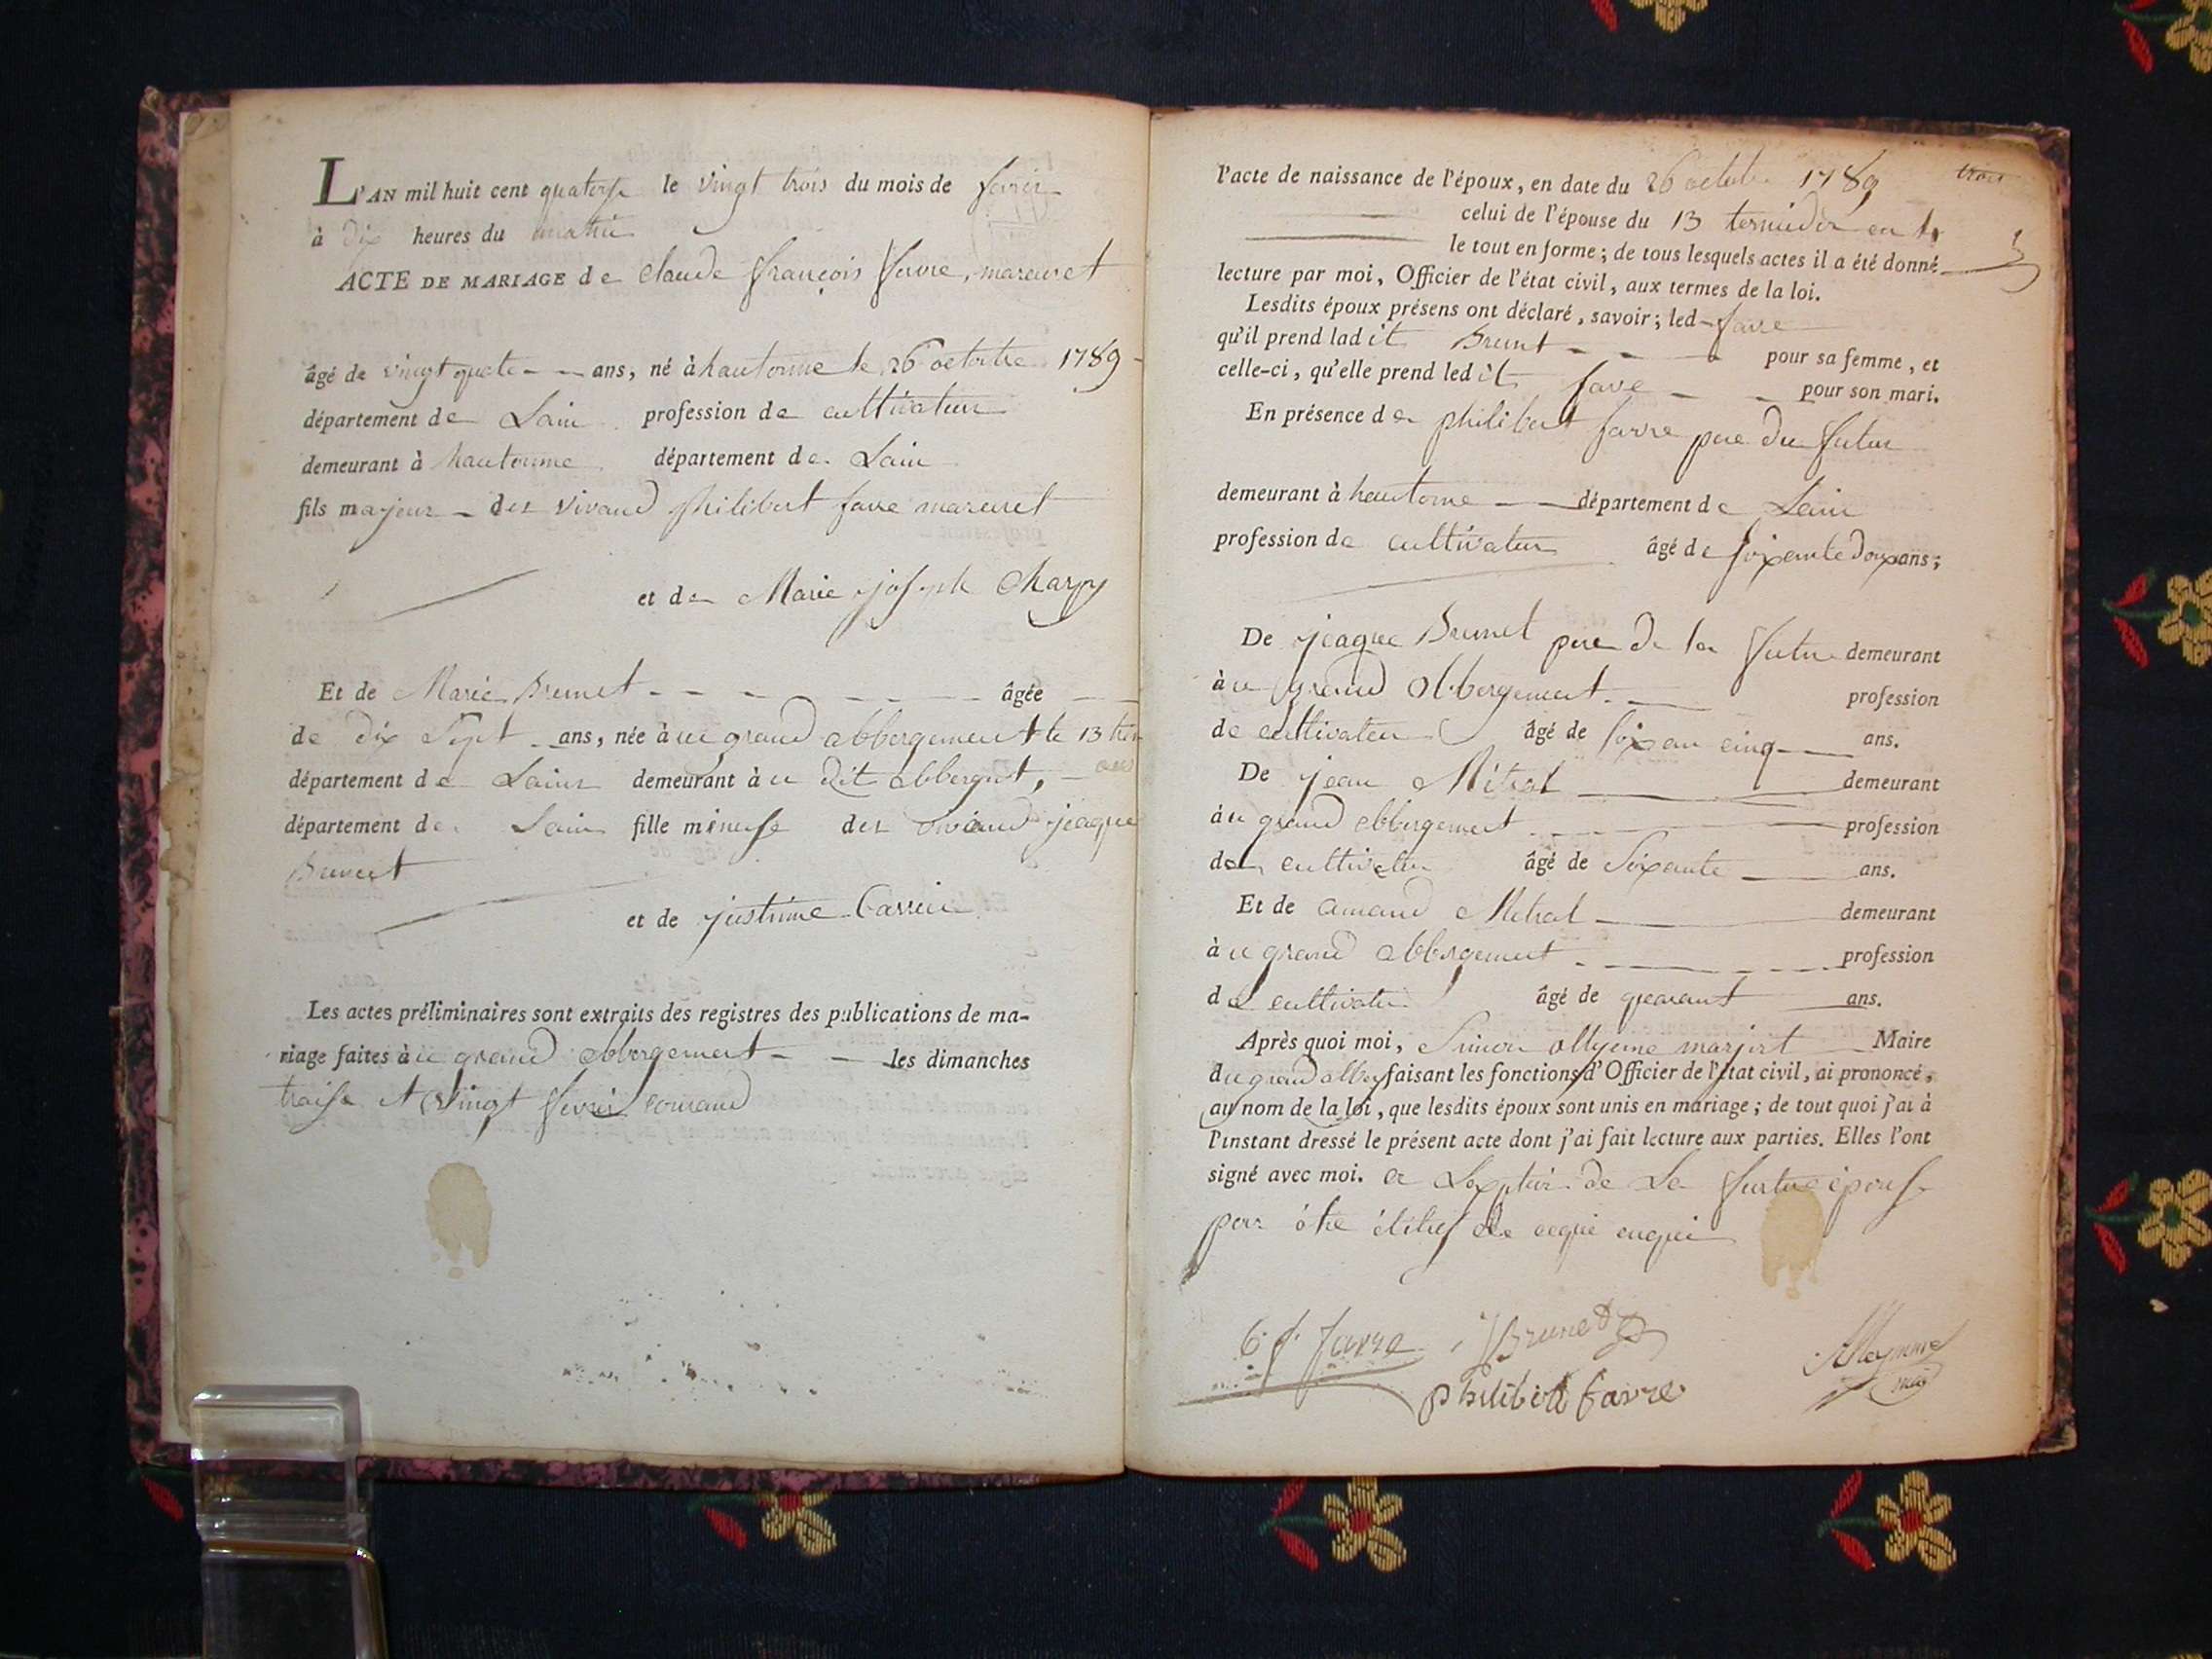 L'AN mil huit cent quatorse le vingt trois du mois de fevrier
à dix heures du matin
ACTE DE MARIAGE de Claude françois favre, marcuret
âgé de vingt quatre ans, né à hautonne le 26 octobre 1789
département de Lain profession de cultivateur
demeurant à hautonne département de Lain
fils majeur des vivand philibert favre marcuret
et de Marie joseph Charpy
Et de Marie Brunet âgée
de dix Sept ans, née à ce grand abbergement le 13
département de Lain demeurant à ce dit abbergnt,
département de Lain fille mineuse des vivand jeaque
Brunet
et de justinne Carrier
Les actes préliminaires sont extraits des registres des publications de ma-
riage faites à ce grand abbergement les dimanches
traise et vingt fevrier courand
l'acte de naissance de l'époux, en date du 26 octobre 1789 trois
celui de l'épouse du 13 termidor
le tout en forme; de tous lesquels actes il a été donné
lecture par moi, Officier de l'état civil, aux termes de la loi.
Lesdits époux présens ont déclaré, savoir; led favre
qu'il prend ladit Brunt pour sa femme, et
celle-ci, qu'elle prend ledit favre pour son mari.
En présence de philibert favre pere du futur
demeurant à hautonne département de Lain
profession de cultivateur âgé de soixante douxans;
De jeaque Brunet pere de la futur demeurant
à ce grand abbergement profession
de cultivateur âgé de soixan cinq ans.
De jean Mitral demeurant
à ce grand abbergement profession
de cultivateur âgé de Soixante ans.
Et de amand Metral demeurant
à ce grand abbergement profession
de cultivateur âgé de quarant ans.
Après quoi moi, Simon Maire
du grand abber faisant les fonctions d'Officier de l'état civil, ai prononcé,
au nom de la loi, que lesdits époux sont unis en mariage; de tout quoi j'ai à
l'instant dressé le présent acte dont j'ai fait lecture aux parties. Elles l'ont
signé avec moi. de La épouse
pour de
C. f. favre JBrunet
philibert favre